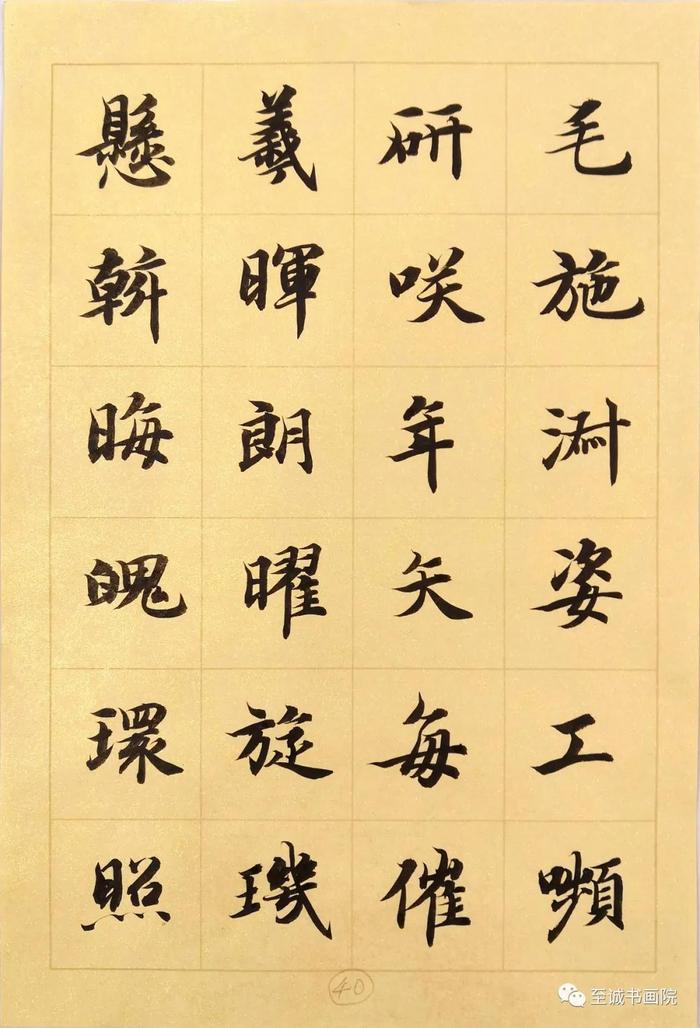 毛施淑姿工嚬
研咲年矢每催
羲暉朗曜旋璣
懸斡晦魄環照
40
至诚书画院